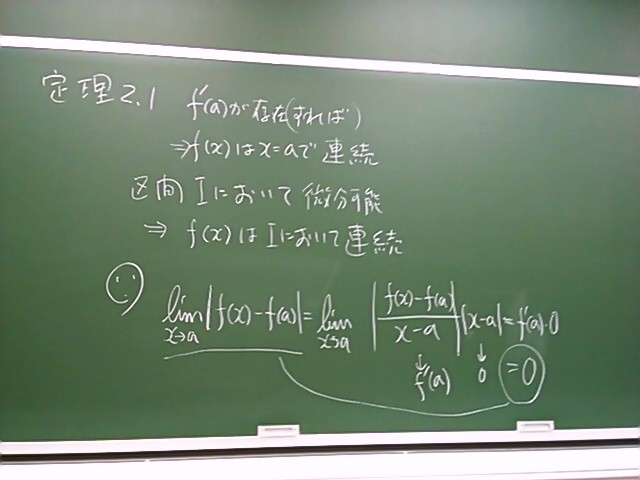 定理2.1 f'(a)が存在(すれば)
⇒f(x)はx=aで連続
区間Iにおいて微分可能
⇒ f(x)はIにおいて連続
lim x→a |f(x)-f(a)| = lim x→a |f(x)-f(a) / x-a| |x-a| = f'(a)・0
↓ f'(a) ↓ 0 =0